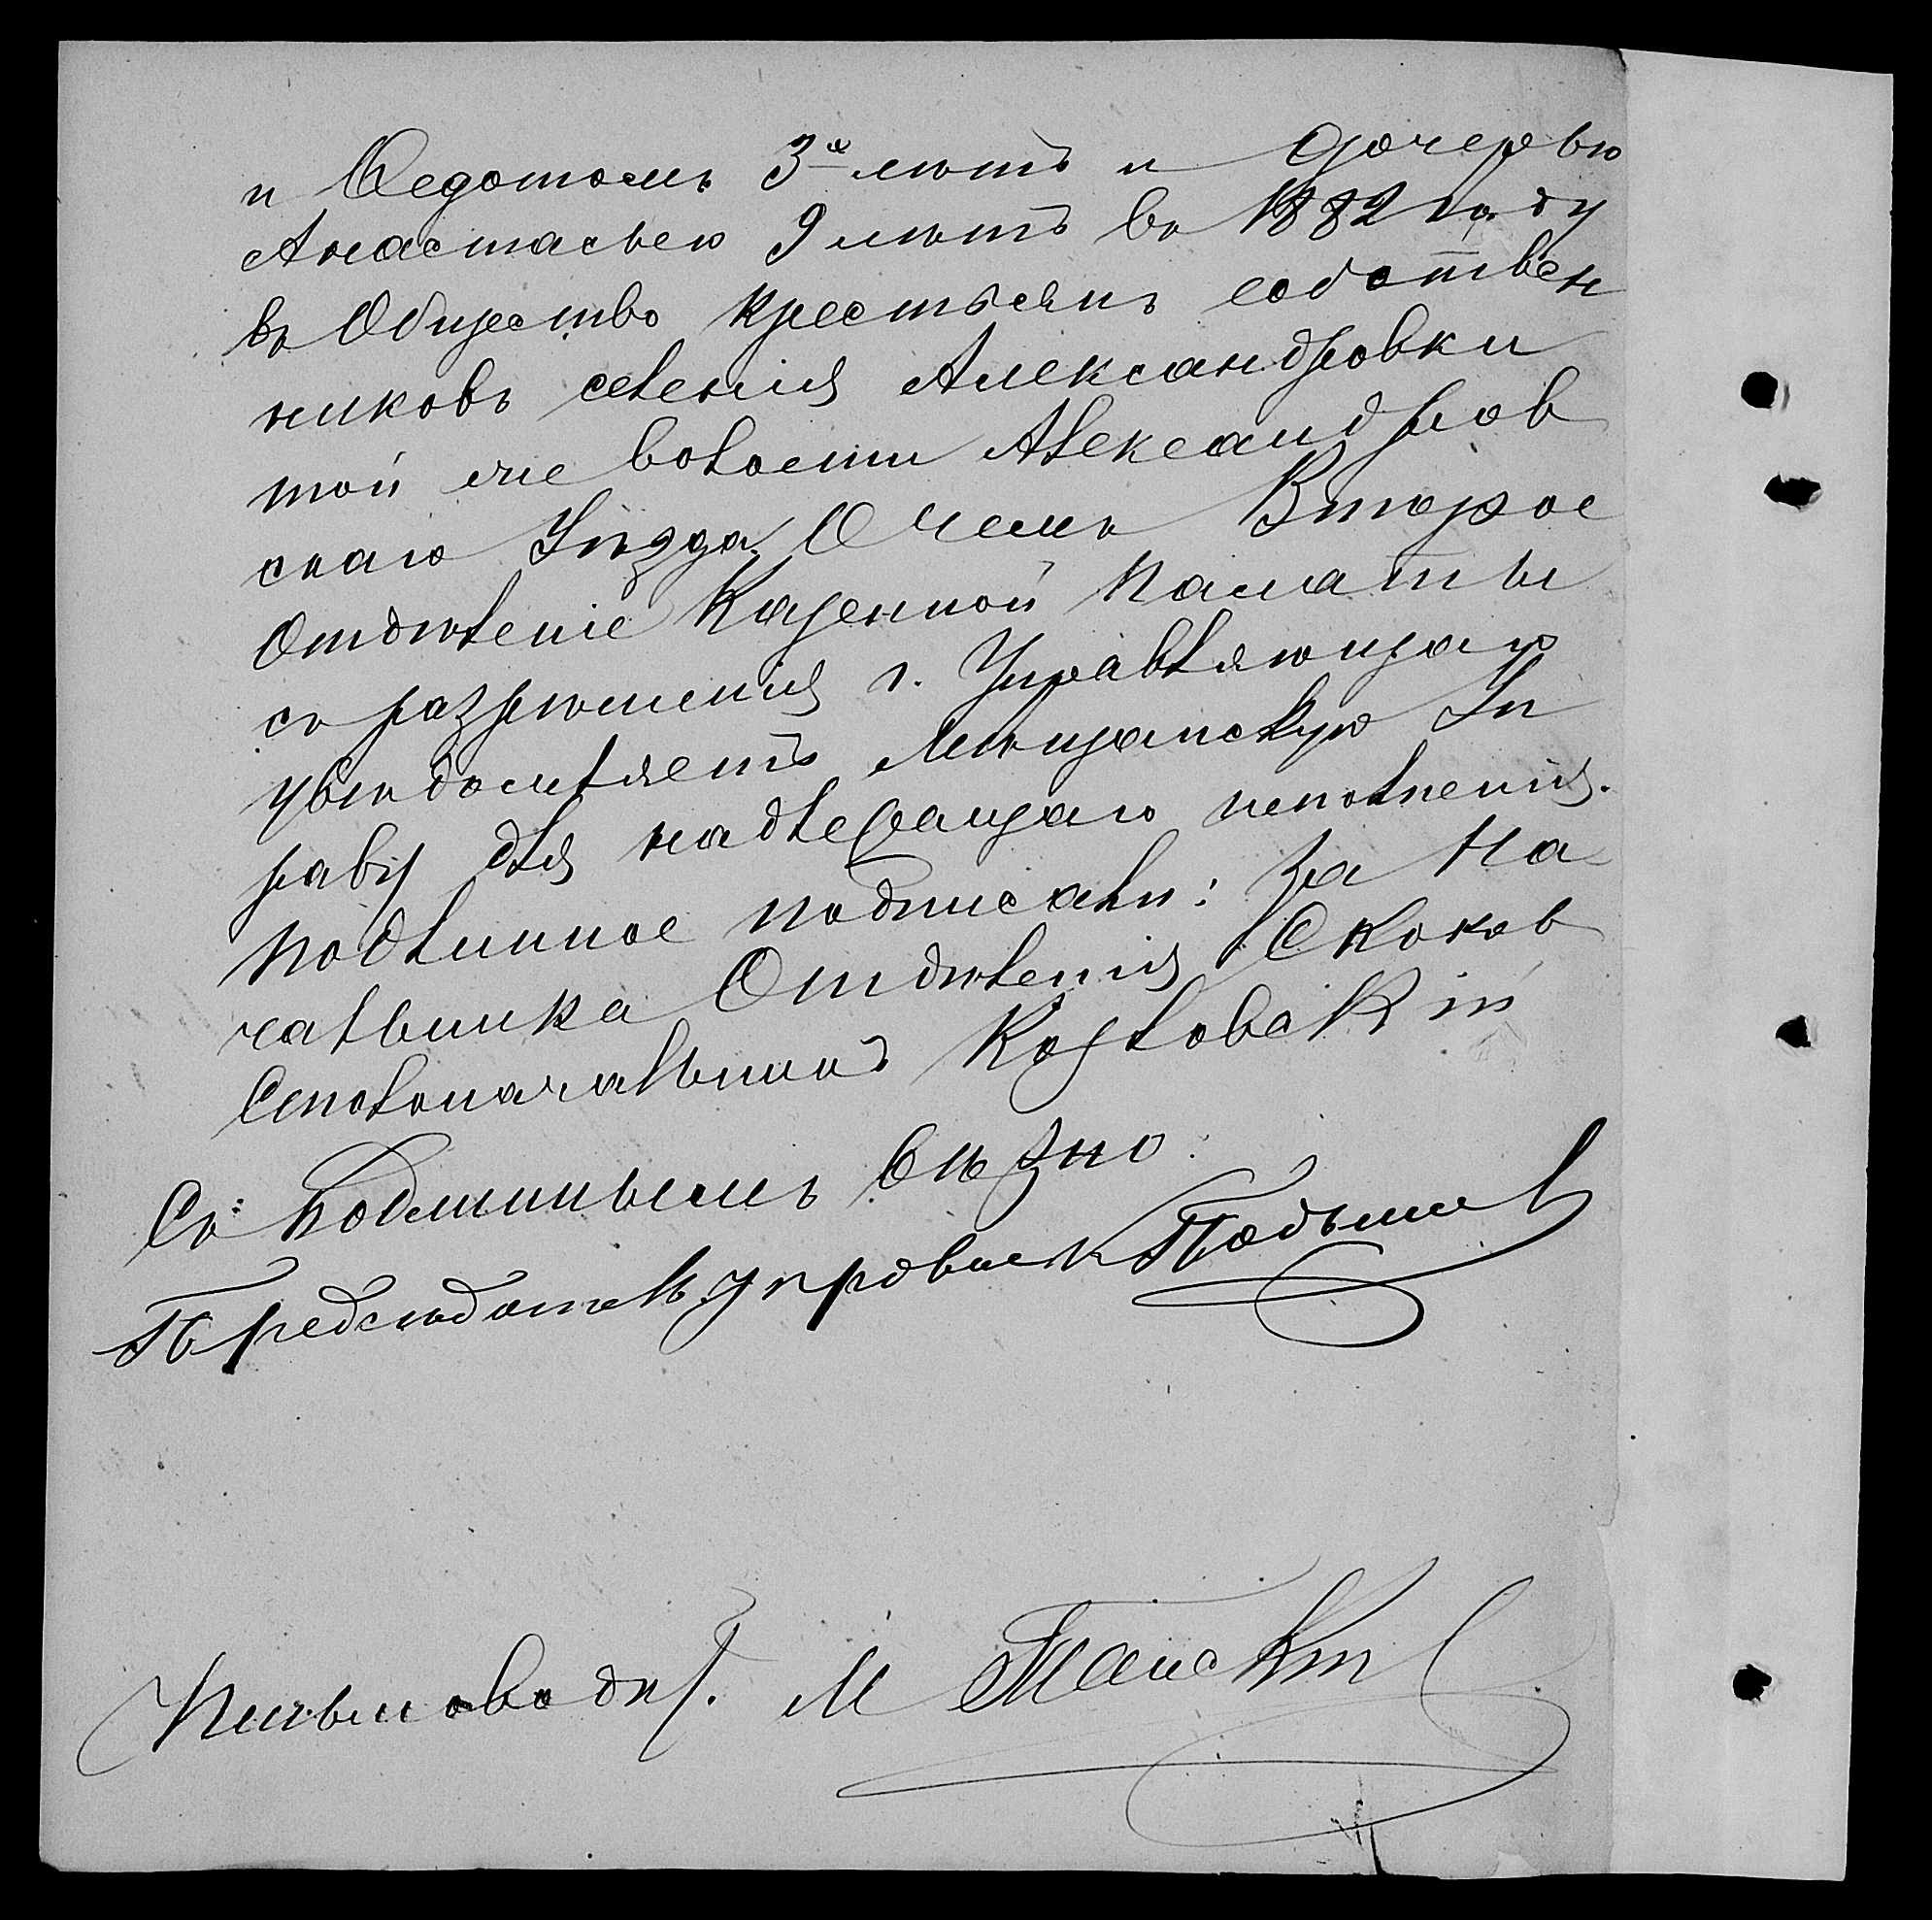 и Ѳедотомъ 3х лѣтъ и дочерью
Анастасьею 9 лѣтъ въ 1882 году
въ Общество крестьянъ собствен
никовъ селенія Александровки
той же волости Александров
скаго Уѣзда. О чемъ Второе
Отдѣленіе Казенной Палаты
съ разрѣшенія г. Управляющаго
увѣдомляетъ Мѣщанскую Уп
раву для надлежащаго исполненія.
Подлинное подписали: За На
чальника Отдѣленія Скоков
Столоначальникъ Козловскій
Съ Подлиннымъ вѣрно:
Предсѣдатель управы
Письмовод.